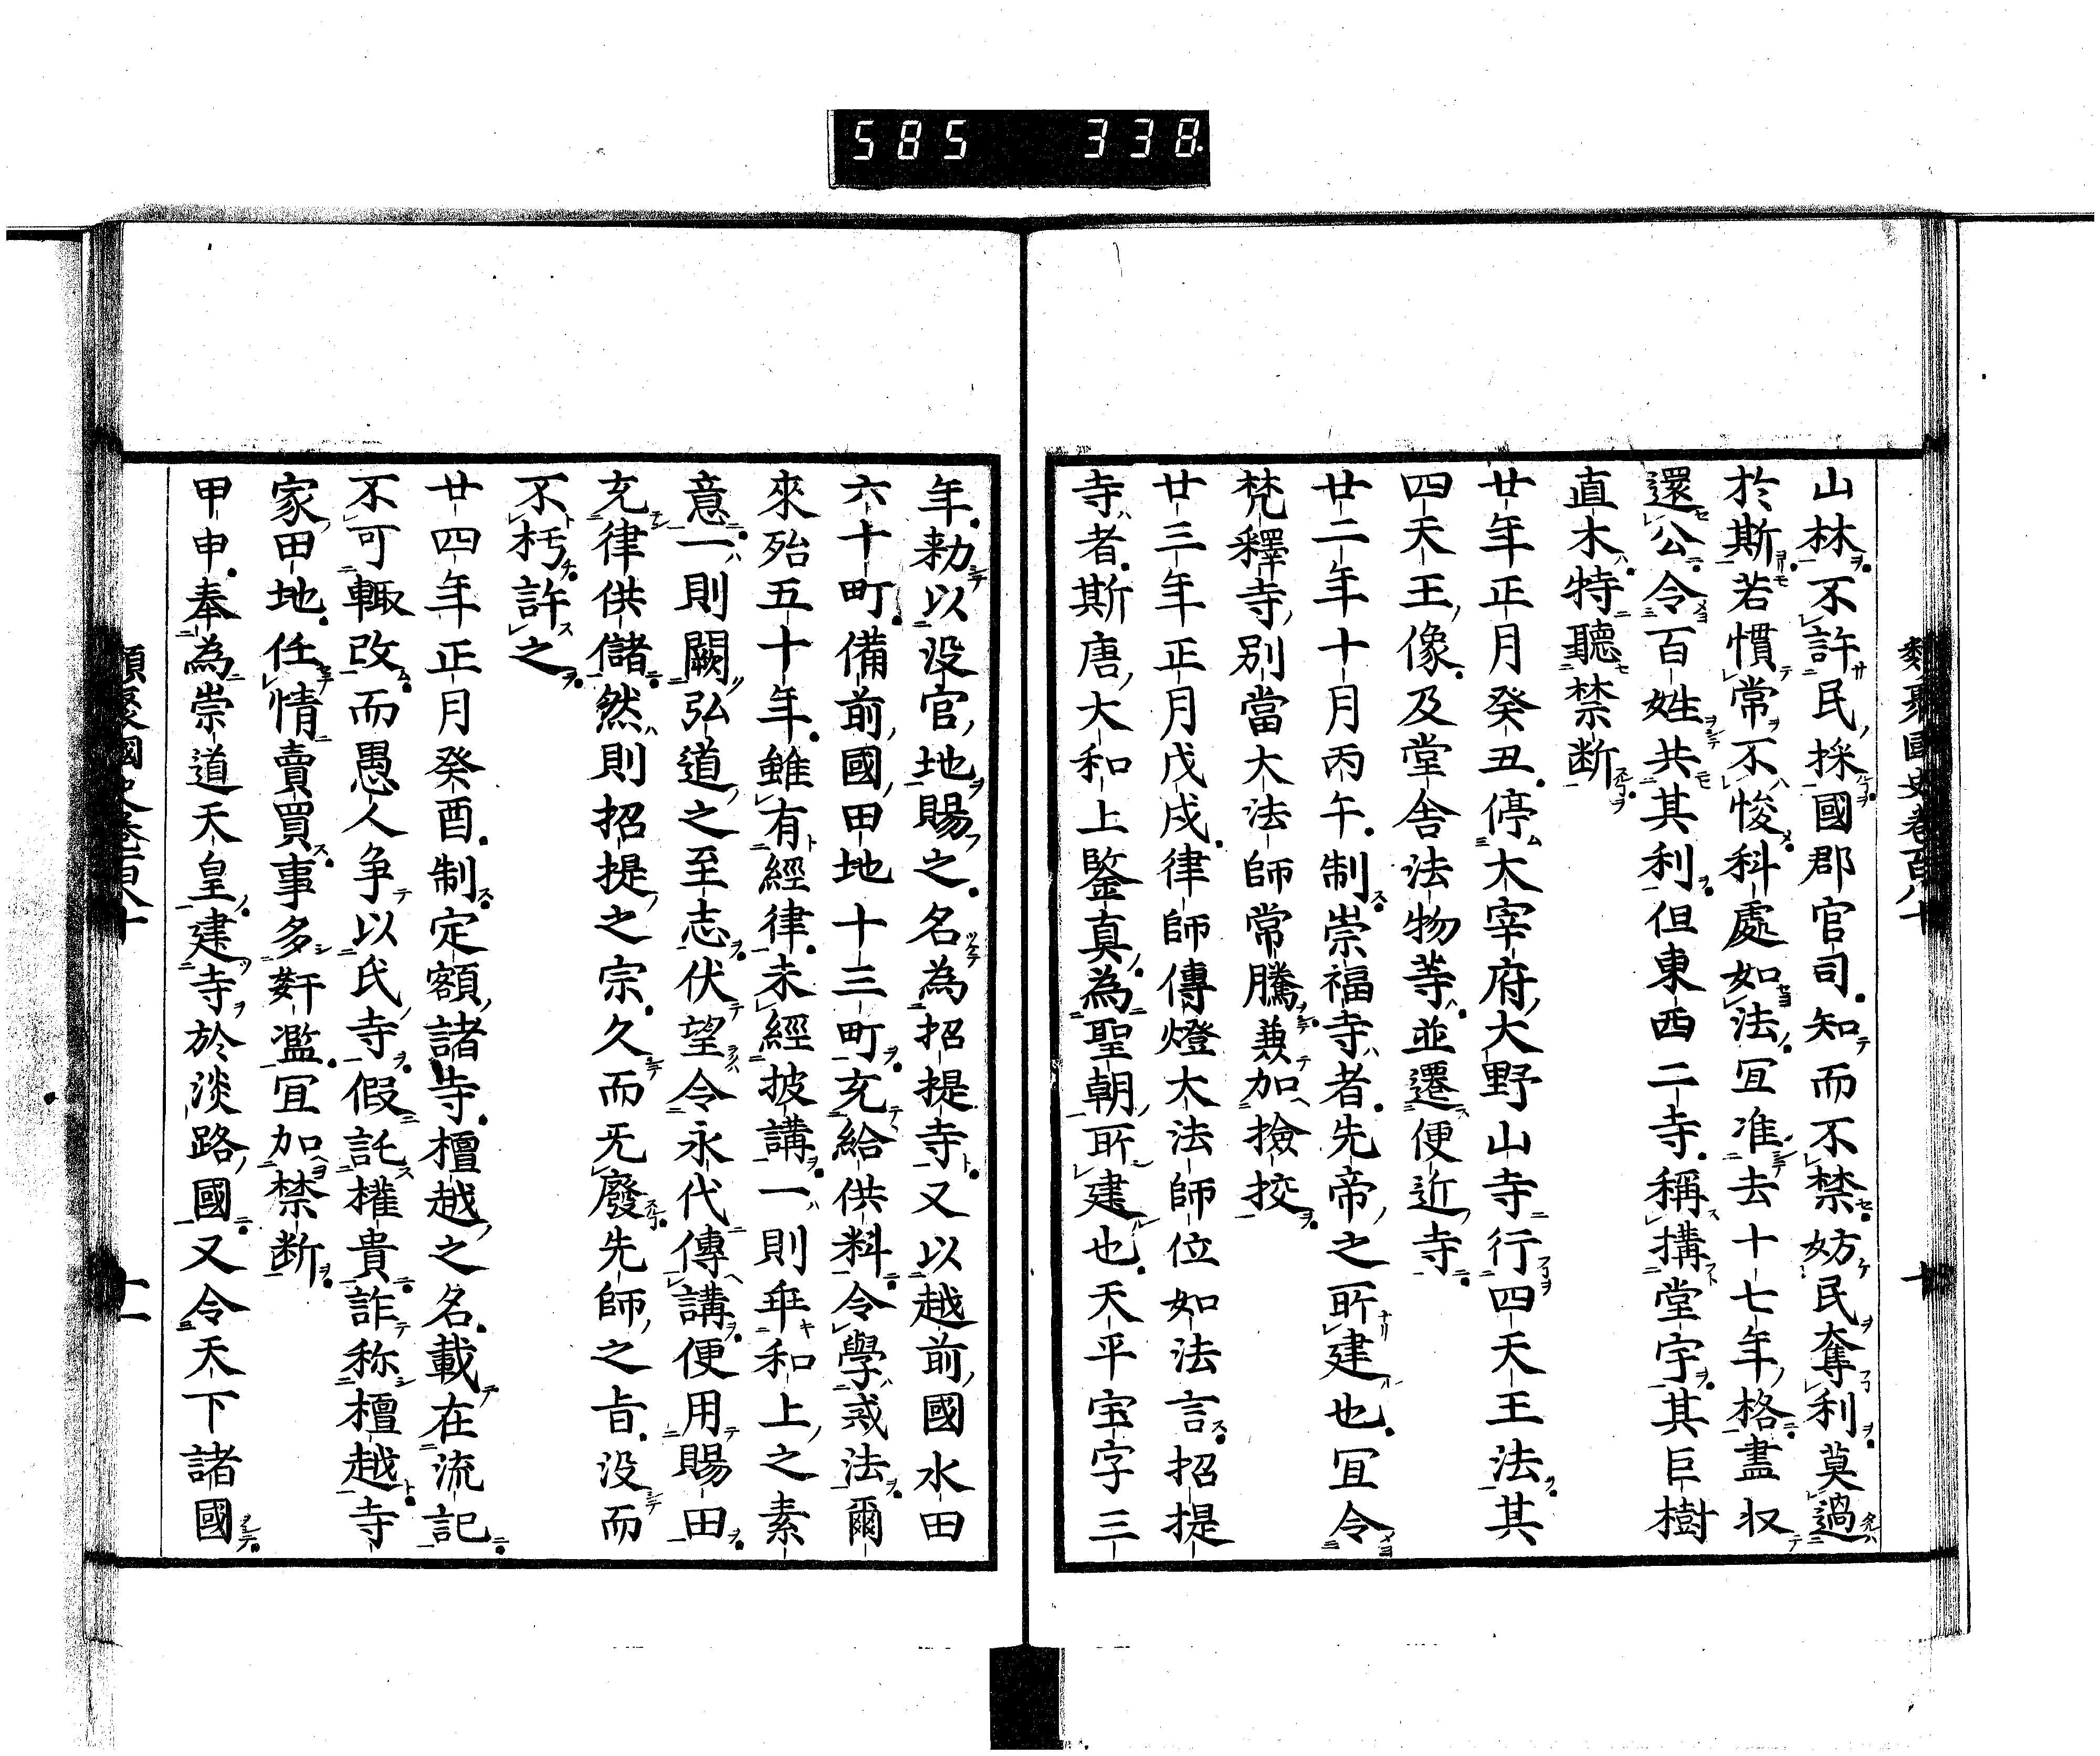 585 338
類聚國史卷百八十 十
山林不許民採國郡官司知而不禁妨民奪利莫過
於斯若慣常不悛科處如法宜准去十七年格盡収
還公令百姓共其利但東西二寺稱搆堂宇其巨樹
直木特聽禁断
廿年正月癸丑停大宰府大野山寺行四天王法其
四天王像及堂舎法物等並遷便近寺
廿二年十月丙午制崇福寺者先帝之所建也宜令
梵釋寺別當大法師常騰兼加撿挍
廿三年正月戊戌律師傳燈大法師位如法言招提
寺者斯唐大和上鑒真為聖朝所建也天平宝字三
年勅以没官地賜之名為招提寺又以越前國水田
六十町備前國田地十三町充給供料令學戒法爾
來殆五十年雖有經律未經披講一則乖和上之素
意一則闕弘道之至志伏望令永代傳講便用賜田
充律供儲然則招提之宗久而旡廢先師之旨没而
不朽許之
廿四年正月癸酉制定額諸寺檀越之名載在流記
不可輙改而愚人争以氏寺假託權貴詐称檀越寺
家田地任情賣買事多姧濫宜加禁断
甲申奉為崇道天皇建寺於淡路國又令天下諸國
類聚國史卷百八十 十一